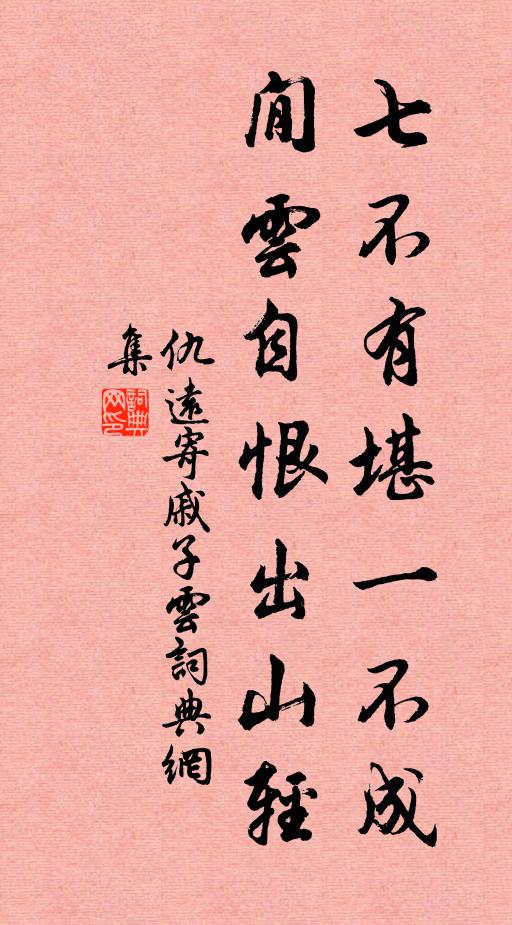 七不有堪一不成
閒雲自恨出山輕
仇遠寄戚子雲詞典網
集
詞典
網印